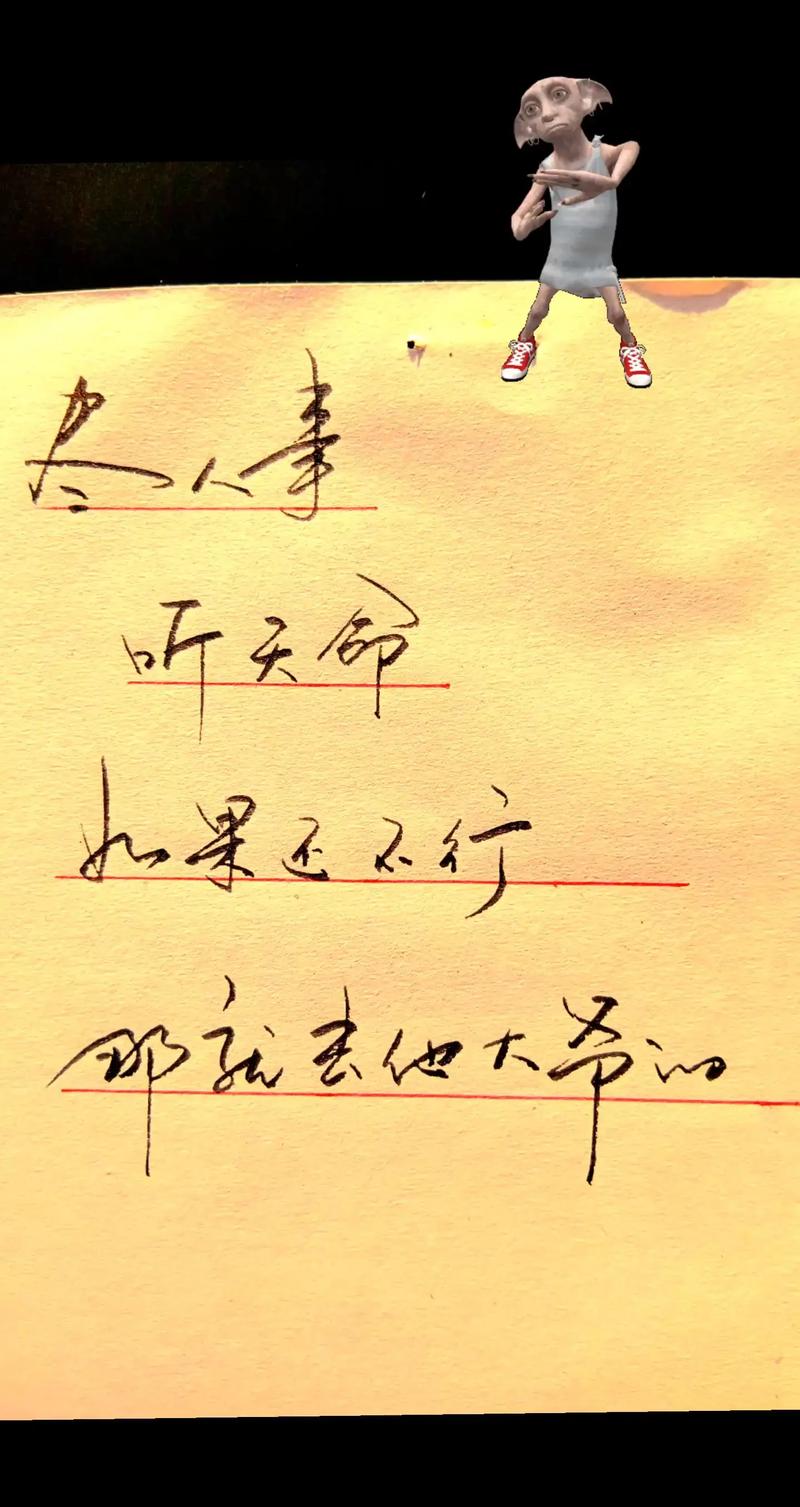 尽人事
听天命
如果还不行
那就去他大爷的